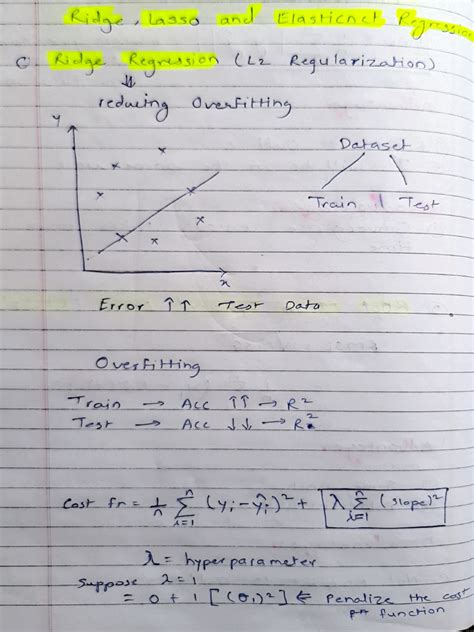 Ridge, Lasso and Elasticnet Regression
Ridge Regression (L2 Regularization)
⇓
reducing Overfitting
y
Dataset
Train | Test
x
Error ↑↑ Test Data
Overfitting
Train → Acc ↑↑ → R²
Test → Acc ↓↓ → R²
Cost fn = 1/n Σ_{i=1}^{n} (yᵢ - ŷᵢ)² + λ Σ_{i=1}^{n} (slope)²
λ = hyperparameter
Suppose λ = 1
= 0 + 1 [(θ₁)²] ⇐ Penalize the cost
function